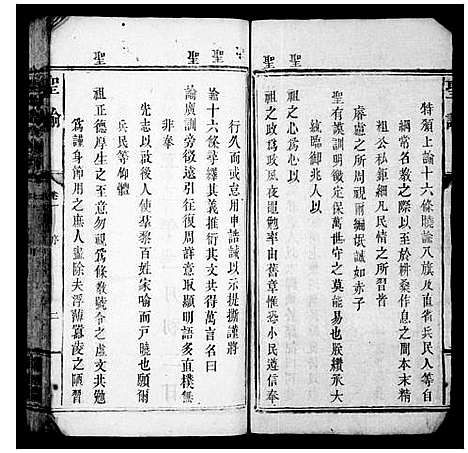 聖諭
特頒上諭十六條曉諭八旗及直省兵民人等自
綱常名教之際以至於耕桑作息之間本末精
粗公私鉅細凡民情之所習者
睿慮之所周視爾編氓誠如赤子
聖有謨訓明徵定保萬世守之莫能易也朕纘承大
統臨御兆人以
聖祖之心為心以
聖祖之政為政夙夜黽勉率由舊章惟恐小民遵信奉
行久而或怠用申誥誡以示提撕謹將
聖諭十六條尋繹其義推衍其文共得萬言名曰
聖諭廣訓旁徵遠引往復周詳意取顯明語多直樸無
非奉
先志以啟後人使羣黎百姓家喻而戶曉也願爾
兵民等仰體
聖祖正德厚生之至意勿視為條教號令之虛文共勉
為謹身節用之庶人盡除夫浮薄囂凌之陋習
聖諭
卷一
序
二